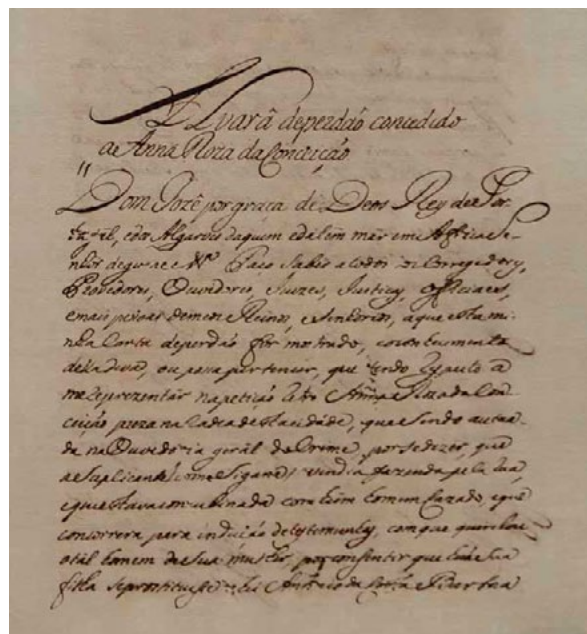 Alvará de perdaõ concedido
a Anna Roza da Conceiçaõ
Dom Jozê por graça de Deos Rey de Por-
tugal, e dos Algarves daquem e dalem mar em Africa Se-
nhor de Guine &ª Faço Saber a todos os Corregedores,
Provedores, Ouvidores, Juizes, Justiças, Officiaes,
e mais pesoas de meus Reinos, e Senhorios, a que esta mi-
nha Carta de perdaõ for mostrada, e o conhecimento
della deva, ou possa pertencer, que tendo respeito a
me reprezentar na petiçaõ Anna Roza da Con-
ceiçaõ preza na Cadea desta cidade, que sendo autua-
da na Ouvedoria geral do Crime, por se dizer, que
a Suplicante como Sigana, vendia fazenda pela rua,
e que estava concubinada com hum homem cazado, e que
concorrera para induçaõ de testemunhas, com que
o tal homem de sua mulher, por consentir que huma sua
filha se prostituisse Antonio da